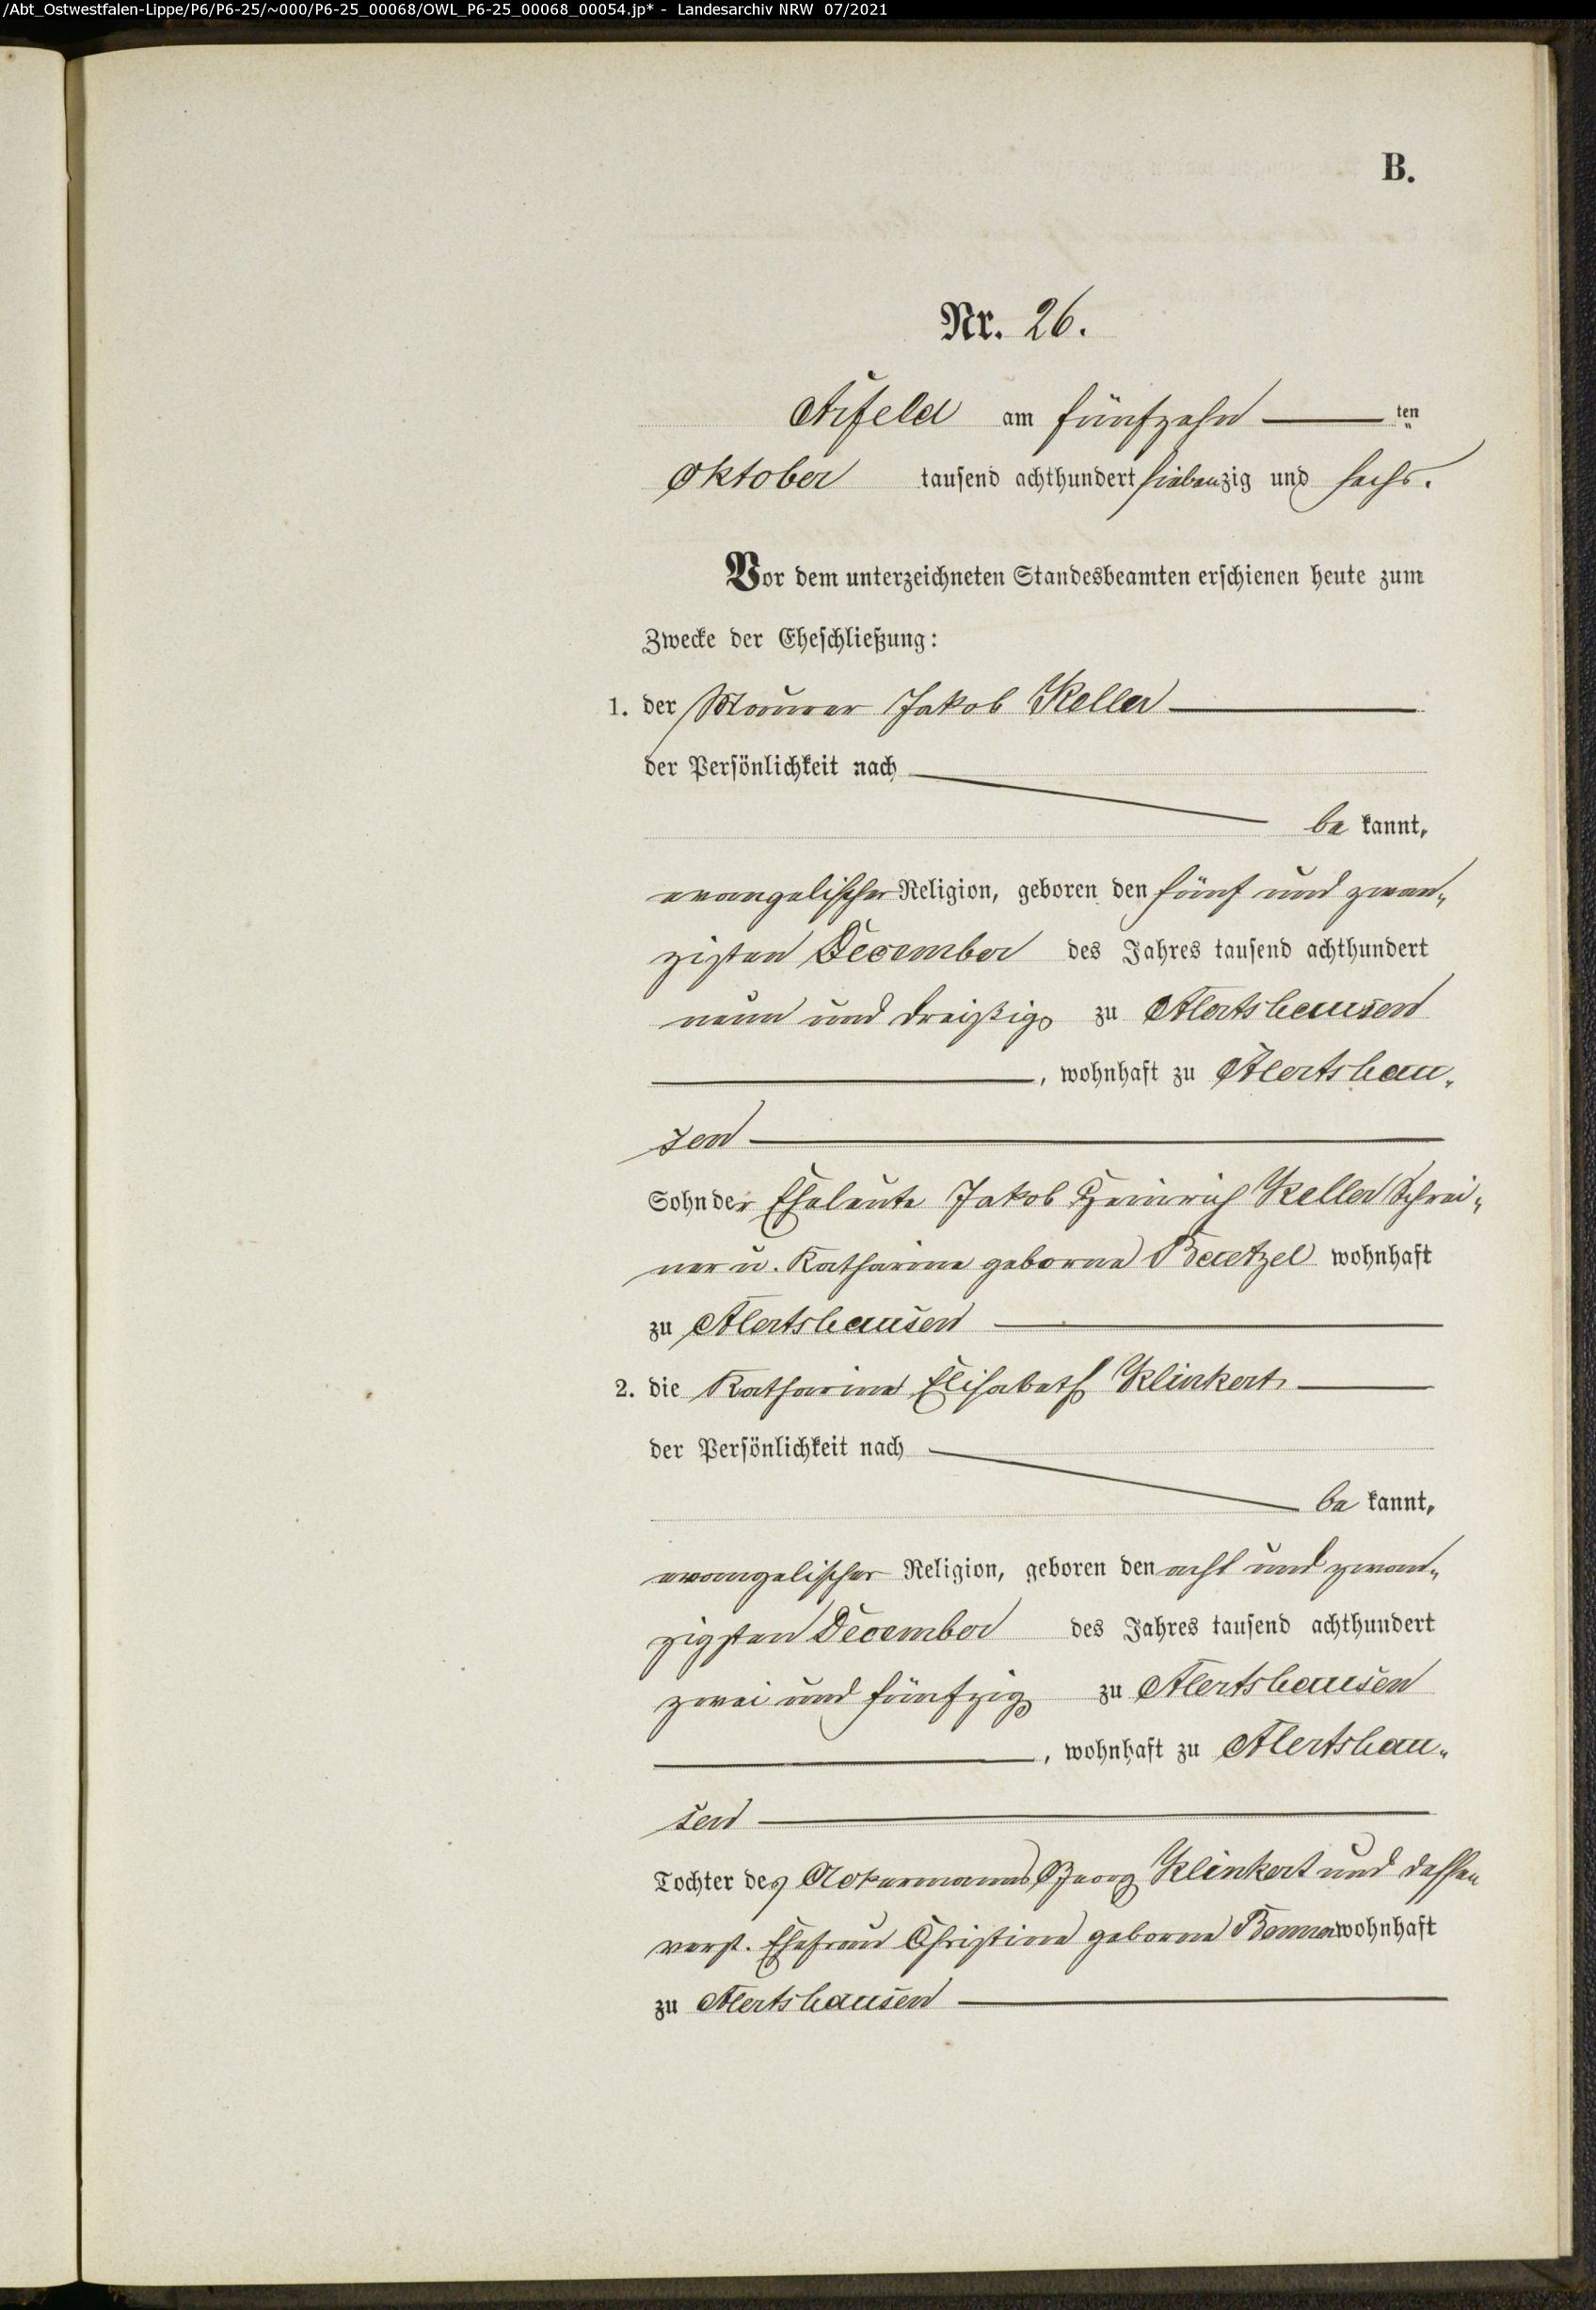 /Abt_Ostwestfalen-Lippe/P6/P6-25/~000/P6-25_00068/OWL_P6-25_00068_00054.jp* - Landesarchiv NRW 07/2021
B.
Nr. 26.
Arfeld am fünfzehn ten
Oktober tausend achthundert siebenzig und sechs.
Vor dem unterzeichneten Standesbeamten erschienen heute zum
Zwecke der Eheschließung:
1. der Maurer Jakob Keller
der Persönlichkeit nach
be kannt,
evangelischer Religion, geboren den fünf und zwan-
zigsten December des Jahres tausend achthundert
neun und dreißig zu Alertshausen
, wohnhaft zu Alertshau-
sen
Sohn der Eheleute Jakob Heinrich Keller Schrei-
ner u. Katharine geborne Baetzel wohnhaft
zu Alertshausen
2. die Katharine Elisabeth Klinkert
der Persönlichkeit nach
be kannt,
evangelischer Religion, geboren den acht und zwan-
zigsten December des Jahres tausend achthundert
zwei und fünfzig zu Alertshausen
, wohnhaft zu Alertshau-
sen
Tochter des Ackermanns Georg Klinkert und dessen
verst. Ehefrau Christine geborne wohnhaft
zu Alertshausen